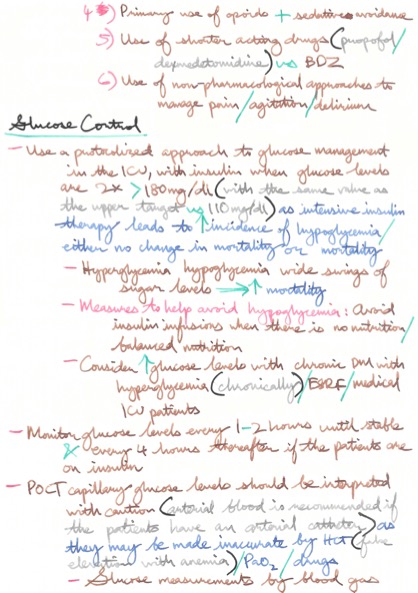 4) Primary use of opioids + sedatives avoidance
5) Use of shorter acting drugs (propofol/
dexmedetomidine) vs BDZ
6) Use of non-pharmacological approaches to
manage pain/agitation/delirium
Glucose Control
- Use a protocolized approach to glucose management
in the ICU, with insulin when glucose levels
are 2x > 180mg/dl (with the same value as
the upper target vs 110mg/dl) as intensive insulin
therapy leads to ↑ incidence of hypoglycemia/
either no change in mortality or mortality
- Hyperglycemia hypoglycemia wide swings of
sugar levels → ↑ mortality
- Measures to help avoid hypoglycemia: Avoid
insulin infusions when there is no nutrition/
balanced nutrition
- Consider ↑ glucose levels with chronic DM with
hyperglycemia (chronically)/ESRF/medical
ICU patients
- Monitor glucose levels every 1-2 hours until stable
& every 4 hours thereafter if the patients are
on insulin
- POCT capillary glucose levels should be interpreted
with caution (arterial blood is recommended if
the patients have an arterial catheter) as
they may be made inaccurate by Hct (false
elevation with anemia)/PaO2/drugs
- Glucose measurements by blood gas